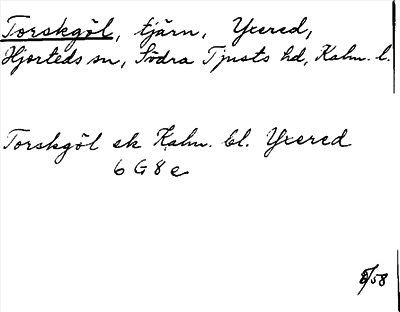 Torskgöl, tjärn, Yxered,
Hjorteds sn, Södra Tjusts hd, Kalm. l.
Torskgöl ek Kalm. bl. Yxered
6 G 8 e
8/58